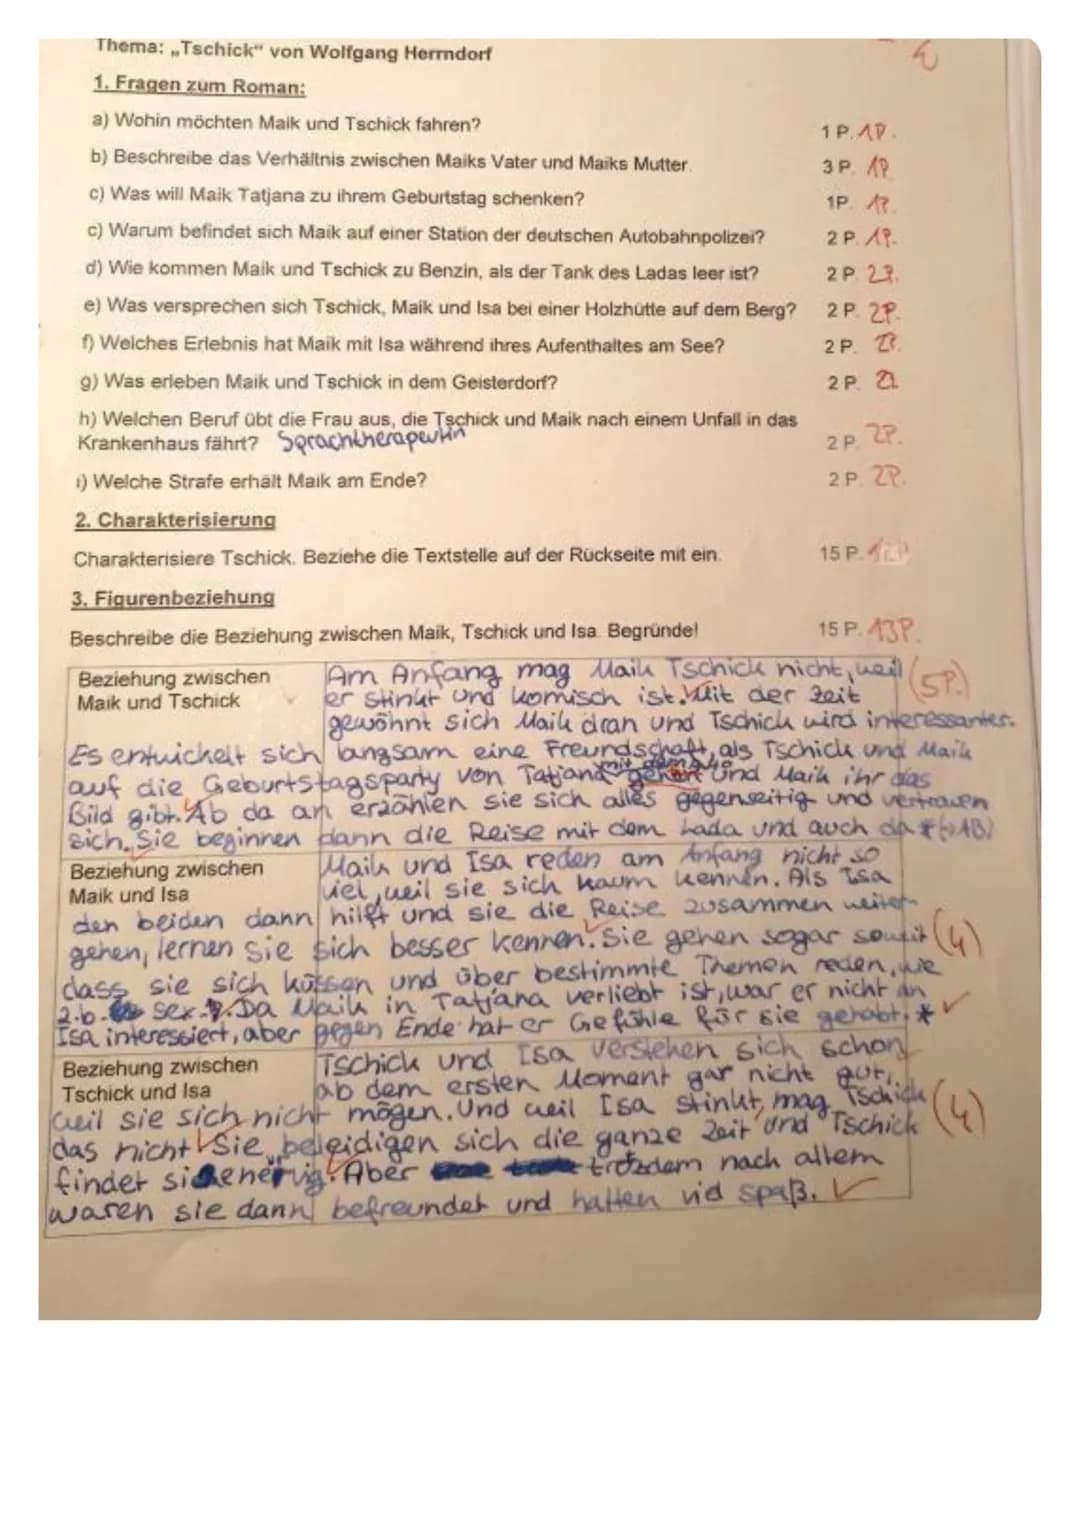 Thema: „Tschick“ von Wolfgang Herrndorf
1. Fragen zum Roman:
a) Wohin möchten Maik und Tschick fahren? 1 P. 1P.
b) Beschreibe das Verhältnis zwischen Maiks Vater und Maiks Mutter. 3 P. 1P
c) Was will Maik Tatjana zu ihrem Geburtstag schenken? 1P. 1P.
c) Warum befindet sich Maik auf einer Station der deutschen Autobahnpolizei? 2 P. 1P.
d) Wie kommen Maik und Tschick zu Benzin, als der Tank des Ladas leer ist? 2 P. 2P.
e) Was versprechen sich Tschick, Maik und Isa bei einer Holzhütte auf dem Berg? 2 P. 2P.
f) Welches Erlebnis hat Maik mit Isa während ihres Aufenthaltes am See? 2 P. 2P.
g) Was erleben Maik und Tschick in dem Geisterdorf? 2 P.
h) Welchen Beruf übt die Frau aus, die Tschick und Maik nach einem Unfall in das
Krankenhaus fährt? Sprachtherapeutin 2 P. 2P.
i) Welche Strafe erhält Maik am Ende? 2 P. 2P.
2. Charakterisierung
Charakterisiere Tschick. Beziehe die Textstelle auf der Rückseite mit ein. 15 P.
3. Figurenbeziehung
Beschreibe die Beziehung zwischen Maik, Tschick und Isa. Begründe! 15 P. 13P.
Beziehung zwischen Am Anfang mag Maik Tschick nicht, weil (5P.)
Maik und Tschick er stinkt und komisch ist. Mit der Zeit
gewöhnt sich Maik dran und Tschick wird interessanter.
Es entwickelt sich langsam eine Freundschaft, als Tschick und Maik
auf die Geburtstagsparty von Tatjana mit dem gehen und Maik ihr das
Bild gibt. Ab da an erzählen sie sich alles gegenseitig und vertrauen
sich. Sie beginnen dann die Reise mit dem Lada und auch da * (→AB)
Beziehung zwischen Maik und Isa reden am Anfang nicht so
Maik und Isa viel, weil sie sich kaum kennen. Als Isa
den beiden dann hilft und sie die Reise zusammen weiter
gehen, lernen sie sich besser kennen. Sie gehen sogar soweit (4)
dass sie sich küssen und über bestimmte Themen reden, wie
z.b. sex. Da Maik in Tatjana verliebt ist, war er nicht an
Isa interessiert, aber gegen Ende hat er Gefühle für sie gehabt. *
Beziehung zwischen Tschick und Isa verstehen sich schon
Tschick und Isa ab dem ersten Moment gar nicht gut,
weil sie sich nicht mögen. Und weil Isa stinkt, mag Tschick (4)
das nicht. Sie beleidigen sich die ganze Zeit und Tschick
findet sie nervig. Aber trotzdem nach allem
waren sie dann befreundet und hatten viel spaß.